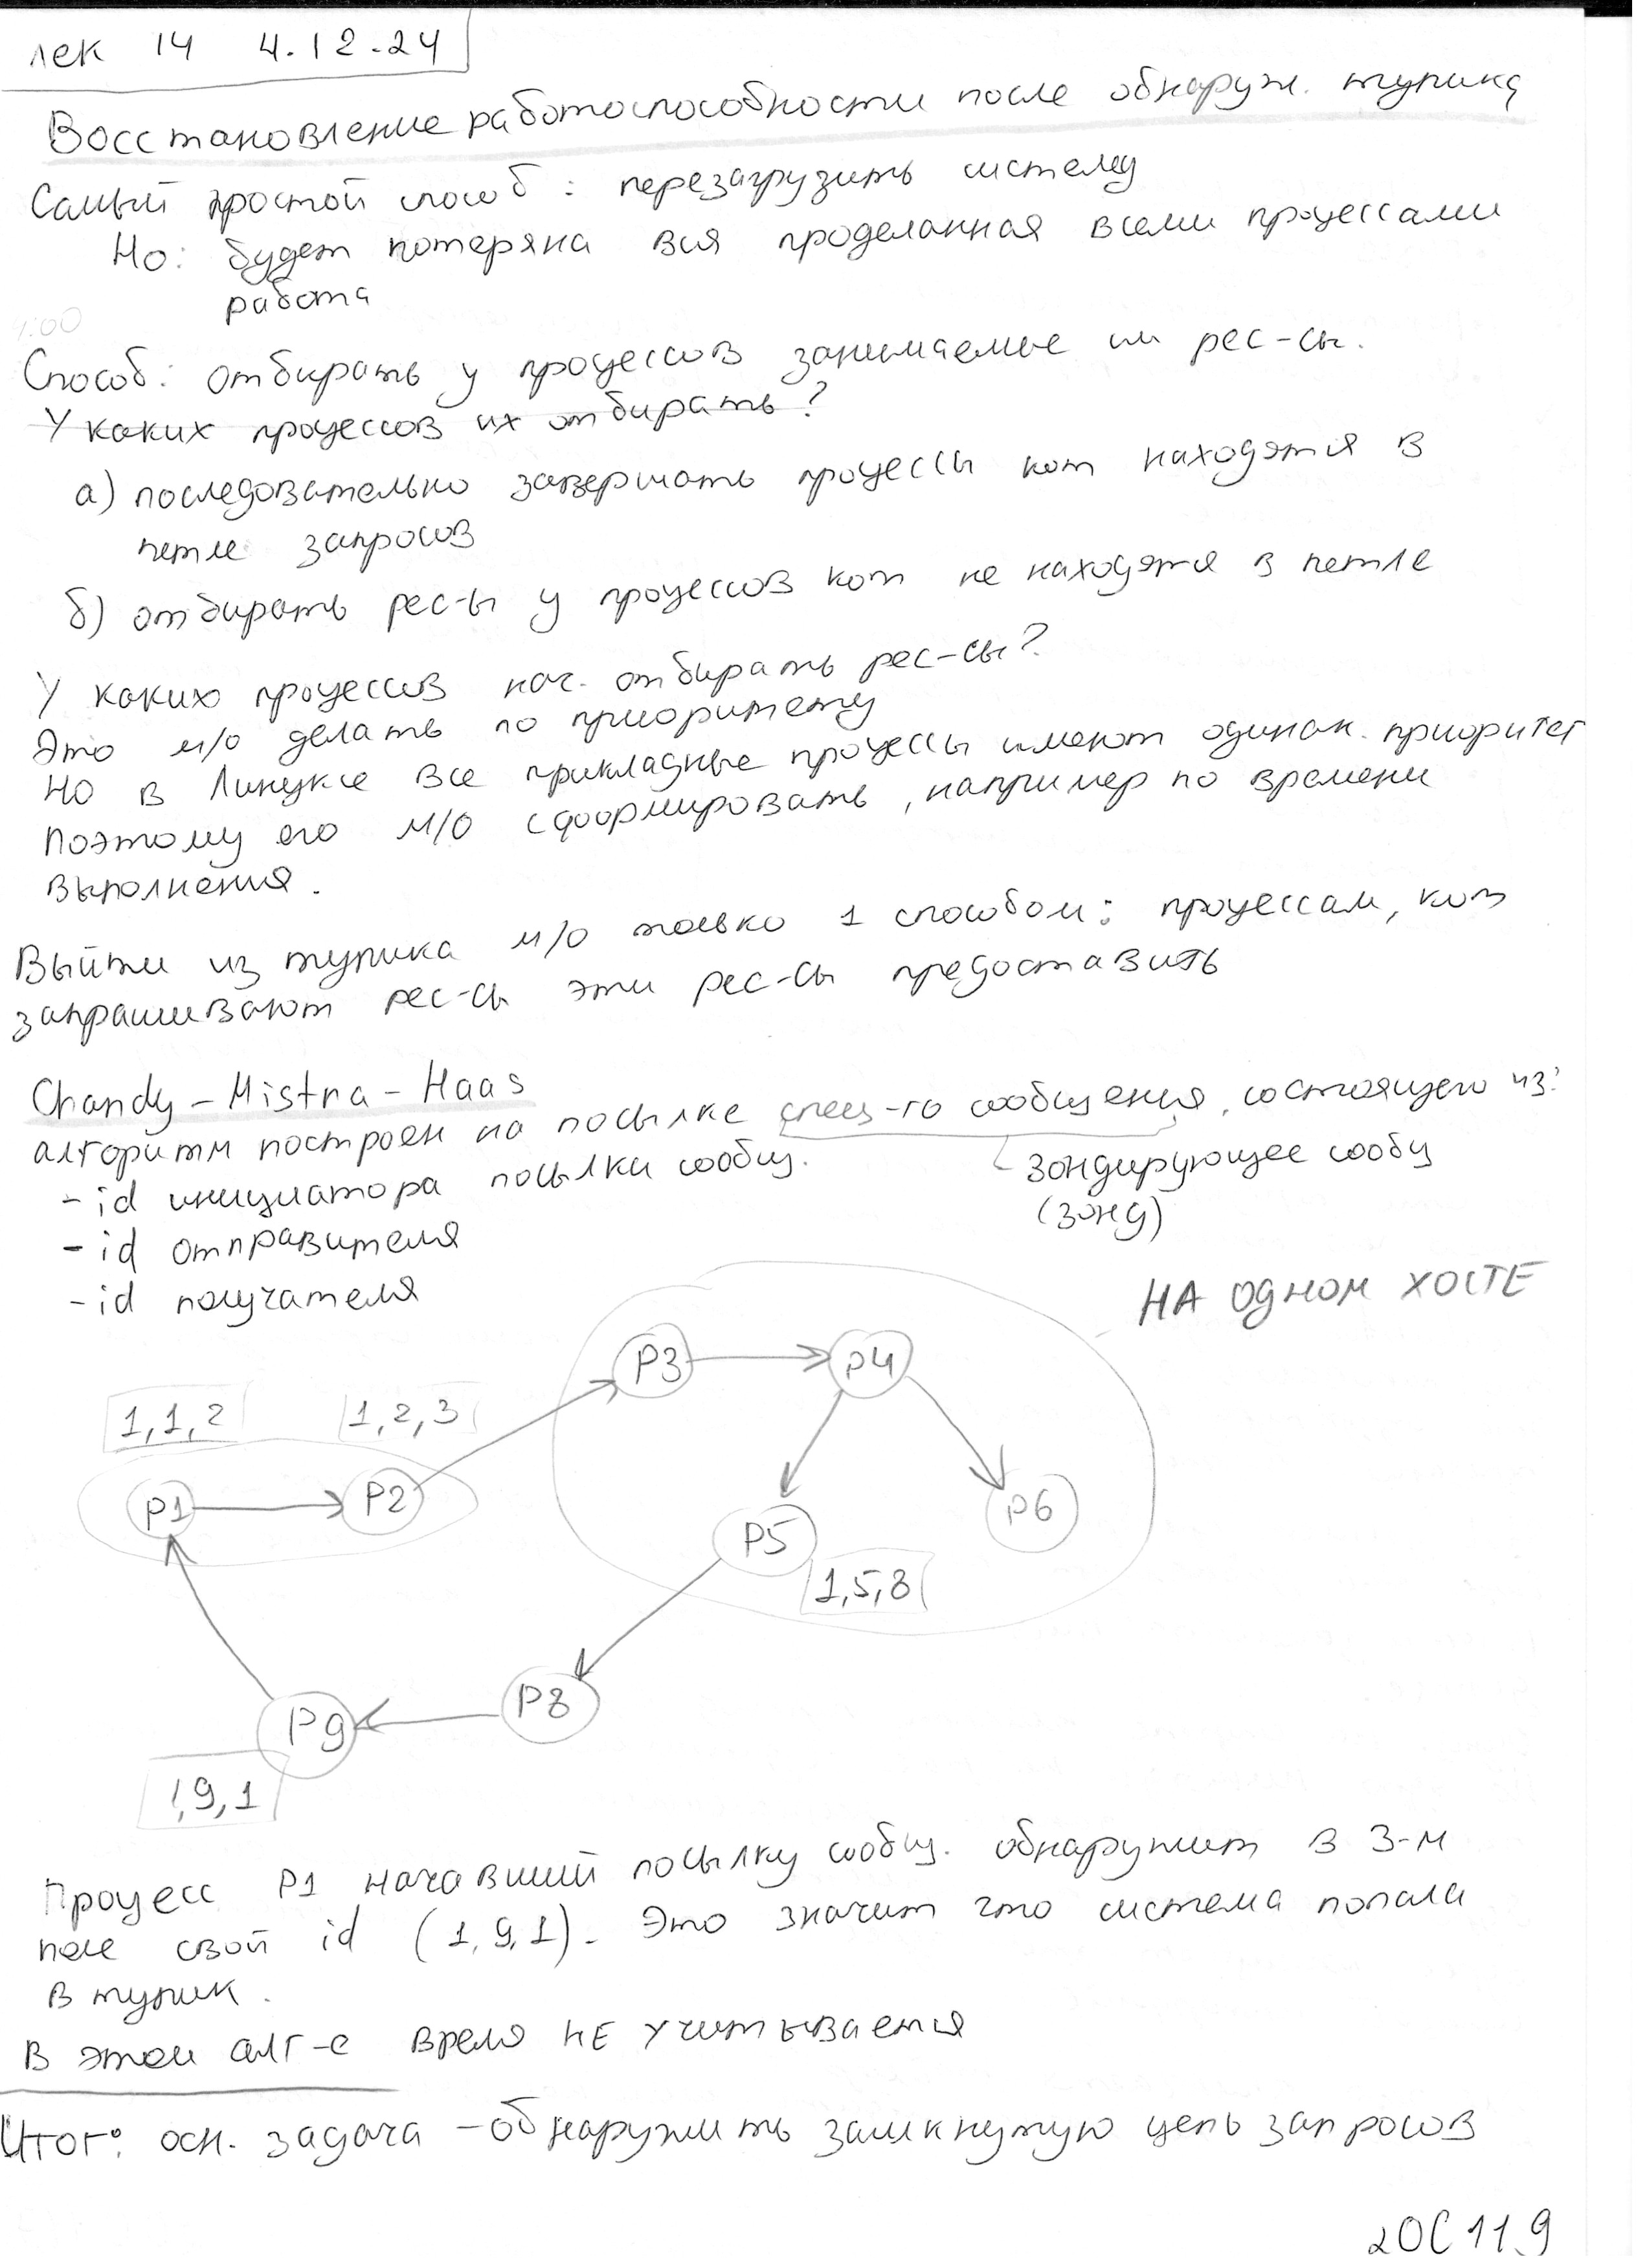 лек 14 4.12.24
Восстановление работоспособности после обнаруж. тупика
Самый простой способ: перезагрузить систему
Но: будет потеряна вся проделанная всеми процессами
работа
1:00
Способ: отбирать у процессов занимаемые им рес-сы.
У каких процессов их отбирать?
а) последовательно завершать процессы кот находятся в
петле запросов
б) отбирать рес-ы у процессов кот не находятся в петле
У каких процессов нач. отбирать рес-сы?
Это м/о делать по приоритету
НО в Линуксе все прикладные процессы имеют одинак. приоритет
Поэтому его м/о сформировать, например по времени
выполнения.
Выйти из тупика м/о только 1 способом: процессам, кот
запрашивают рес-сы эти рес-сы предоставить
Chandy-Mistra-Haas
алгоритм построен на посылке спец-го сообщения, состоящего из:
- id инициатора посылки сообщ.
зондирующее сообщ
(зонд)
- id отправителя
- id получателя
НА ОДНОМ ХОСТЕ
P3 P4
1,1,2 1,2,3
P1 P2
P5 P6
1,5,8
P9 P8
1,9,1
Процесс P1 начавший посылку сообщ. обнаружит в 3-м
поле свой id (1,9,1). Это значит что система попала
в тупик.
В этом алг-е время НЕ учитывается
Итог: осн. задача - обнаружить замкнутую цепь запросов
2ОС 11.9